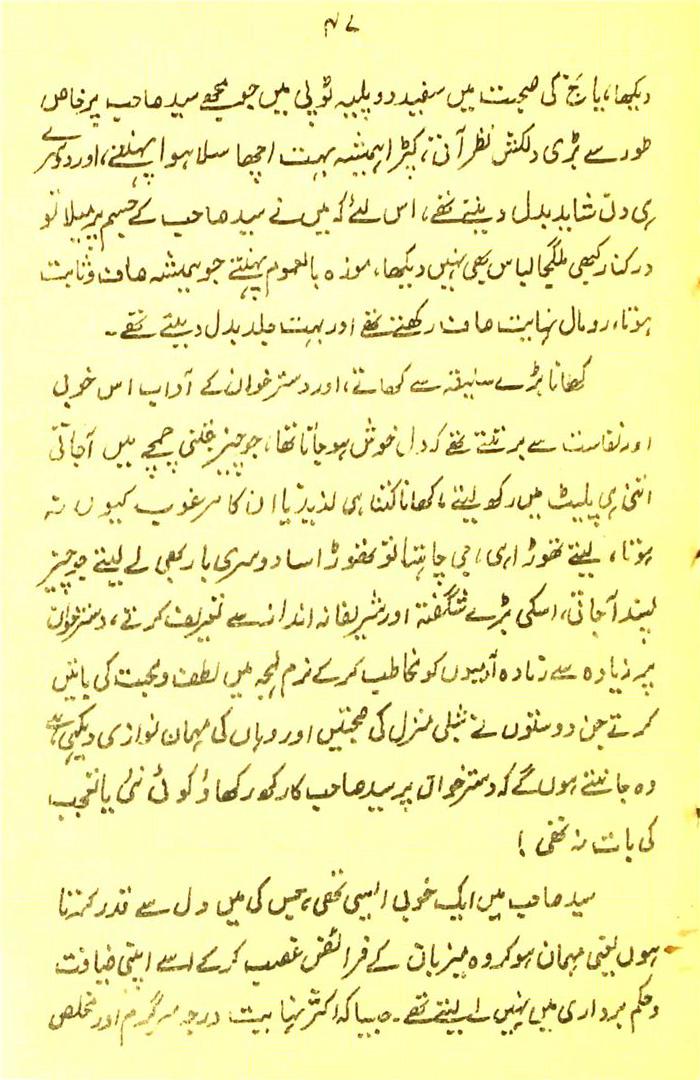 ۴۷
دیکھا، یا رنج کی صحبت میں سفید دو پلیہ ٹوپی میں جو مجھے سید صاحب پر خاص
طور سے بڑی دلکش نظر آتی، کپڑا ہمیشہ بہت اچھا سلا ہوا پہنتے، اور دوسرے
ہی دن شاید بدل دیتے تھے، اس لئے کہ میں نے سید صاحب کے جسم پر میلا تو
درکنار کبھی ملگجا لباس بھی نہیں دیکھا، موزہ بالعموم پہنتے جو ہمیشہ صاف و ثابت
ہوتا، رومال نہایت صاف رکھتے تھے اور بہت جلد بدل دیتے تھے۔
کھانا بڑے سلیقہ سے کھاتے، اور دسترخوان کے آداب اس خوبی
اور نفاست سے برتتے تھے کہ دل خوش ہو جاتا تھا، جو چیز جتنی چمچے میں آ جاتی
اتنی ہی پلیٹ میں رکھ لیتے، کھانا کتنا ہی لذیذ یا ان کا مرغوب کیوں نہ
ہوتا، لیتے تھوڑا ہی، جی چاہتا تو تھوڑا سا دوسری بار بھی لے لیتے جو چیز
پسند آ جاتی، اسکی بڑے شگفتہ اور شریفانہ انداز سے تعریف کرتے، دسترخوان
پر زیادہ سے زیادہ آدمیوں کو مخاطب کر کے نرم لہجہ میں لطف و محبت کی باتیں
کرتے جن دوستوں نے شبلی منزل کی صحبتیں اور وہاں کی مہمان نوازی دیکھی ہے
وہ جانتے ہوں گے کہ دسترخوان پر سید صاحب کا رکھ رکھاؤ کوئی نئی یا تعجب
کی بات نہ تھی!
سید صاحب میں ایک خوبی ایسی تھی، جس کی میں دل سے قدر کرتا
ہوں یعنی مہمان ہو کر وہ میزبان کے فرائض غصب کر کے اسے اپنی ضیافت
و حکم برداری میں نہیں لے لیتے تھے۔ جیسا کہ اکثر نہایت درجہ سرگرم اور مخلص